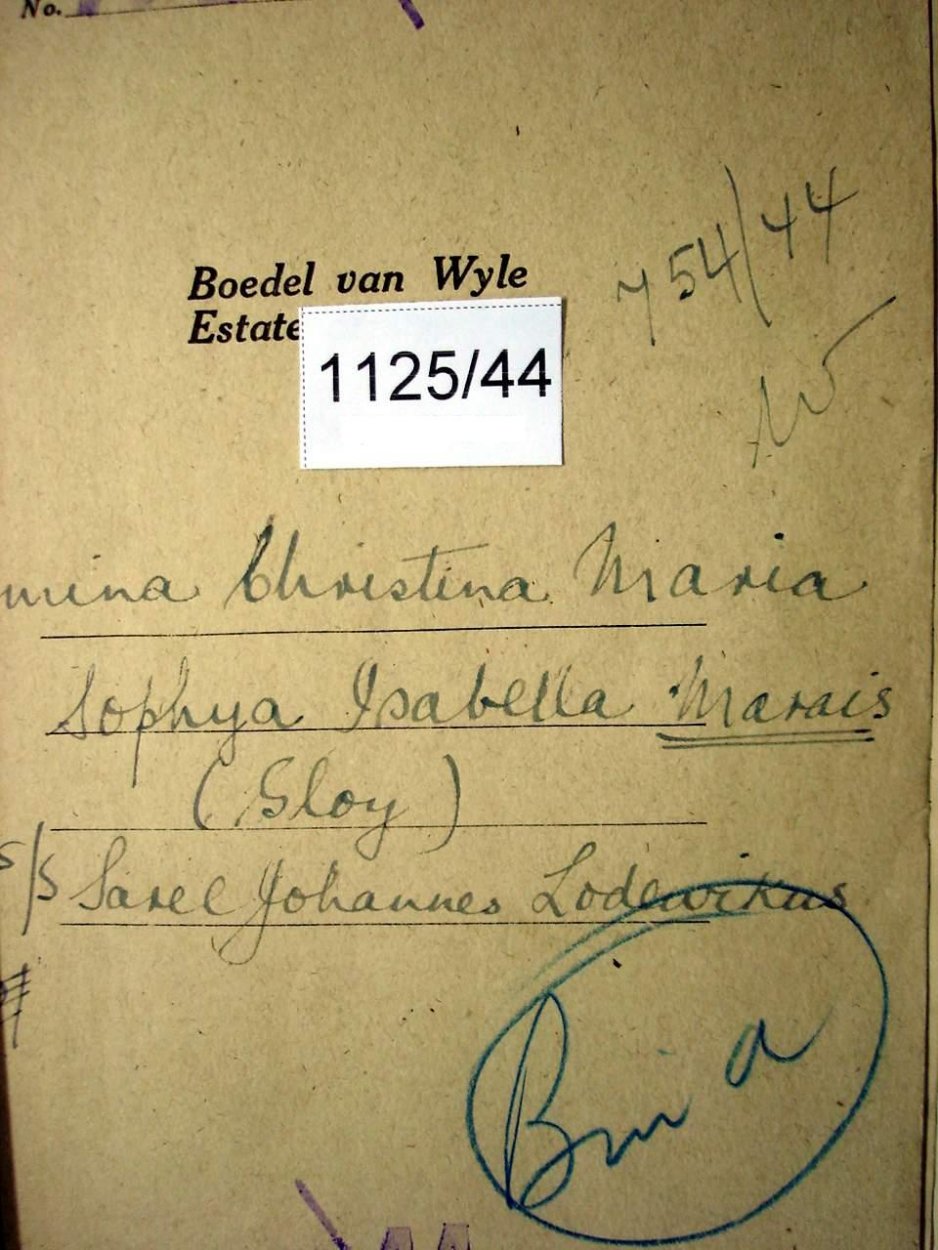 No.
754/44
Boedel van Wyle
Estate
1125/44
mina Christina Maria
Sophya Isabella Marais
(Gloy)
s/s Sarel Johannes Lodewikus